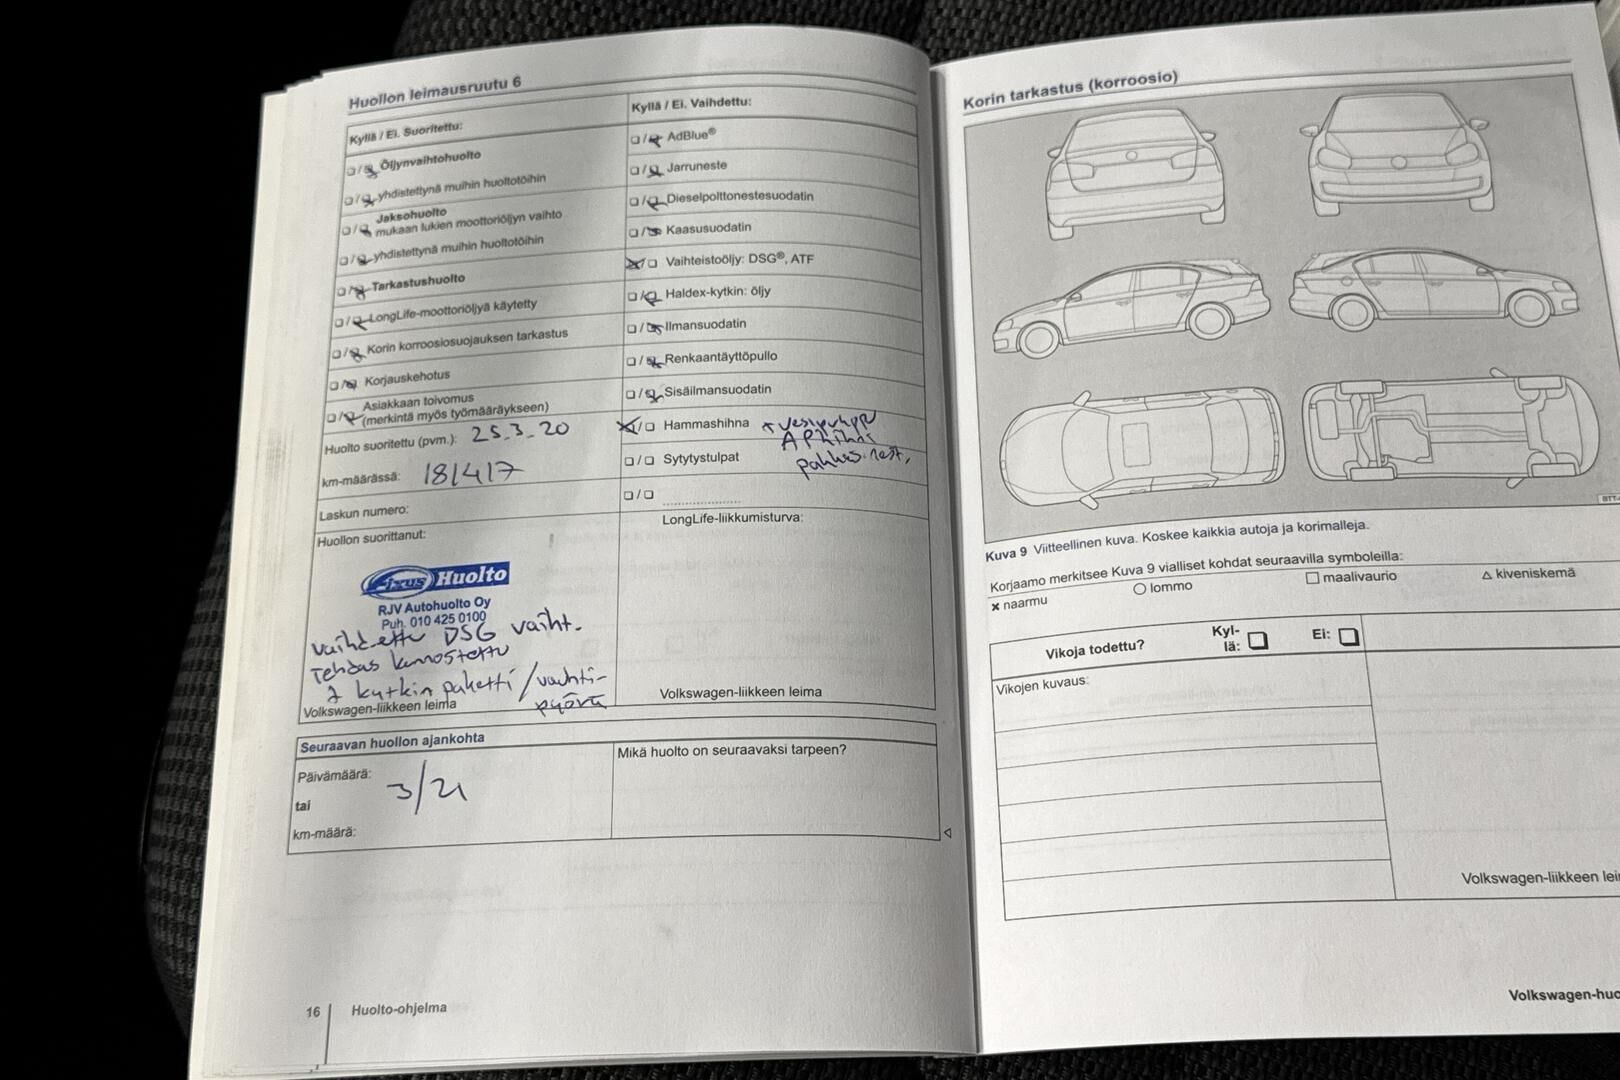 Huollon leimausruutu 6
Kyllä / Ei. Suoritettu:
Öljynvaihtohuolto
yhdistettynä muihin huoltotöihin
Jaksohuolto
mukaan lukien moottoriöljyn vaihto
yhdistettynä muihin huoltotöihin
Tarkastushuolto
LongLife-moottoriöljyä käytetty
Korin korroosiosuojauksen tarkastus
Korjauskehotus
Asiakkaan toivomus
(merkintä myös työmääräykseen)
Huolto suoritettu (pvm.): 25.3.20
km-määrässä: 181417
Laskun numero:
Huollon suorittanut:
Fixus Huolto
RJV Autohuolto Oy
Puh. 010 425 0100
Vaihdettu DSG vaiht.
Tehdas kunnostettu
kytkin paketti / vauhti-
pyörä
Volkswagen-liikkeen leima
Kyllä / Ei. Vaihdettu:
AdBlue®
Jarruneste
Dieselpolttonestesuodatin
Kaasusuodatin
Vaihteistoöljy: DSG®, ATF
Haldex-kytkin: öljy
Ilmansuodatin
Renkaantäyttöpullo
Sisäilmansuodatin
Hammashihna + vesipumppu
AP hihna
pakkas.nest.
Sytytystulpat
LongLife-liikkumisturva:
Volkswagen-liikkeen leima
Seuraavan huollon ajankohta
Päivämäärä: 3/21
tai
km-määrä:
Mikä huolto on seuraavaksi tarpeen?
16 Huolto-ohjelma
Korin tarkastus (korroosio)
Kuva 9 Viitteellinen kuva. Koskee kaikkia autoja ja korimalleja.
Korjaamo merkitsee Kuva 9 vialliset kohdat seuraavilla symboleilla:
× naarmu
○ lommo
□ maalivaurio
△ kiveniskemä
Vikoja todettu?
Kyl-
lä:
Ei:
Vikojen kuvaus:
Volkswagen-liikkeen lei
Volkswagen-huo